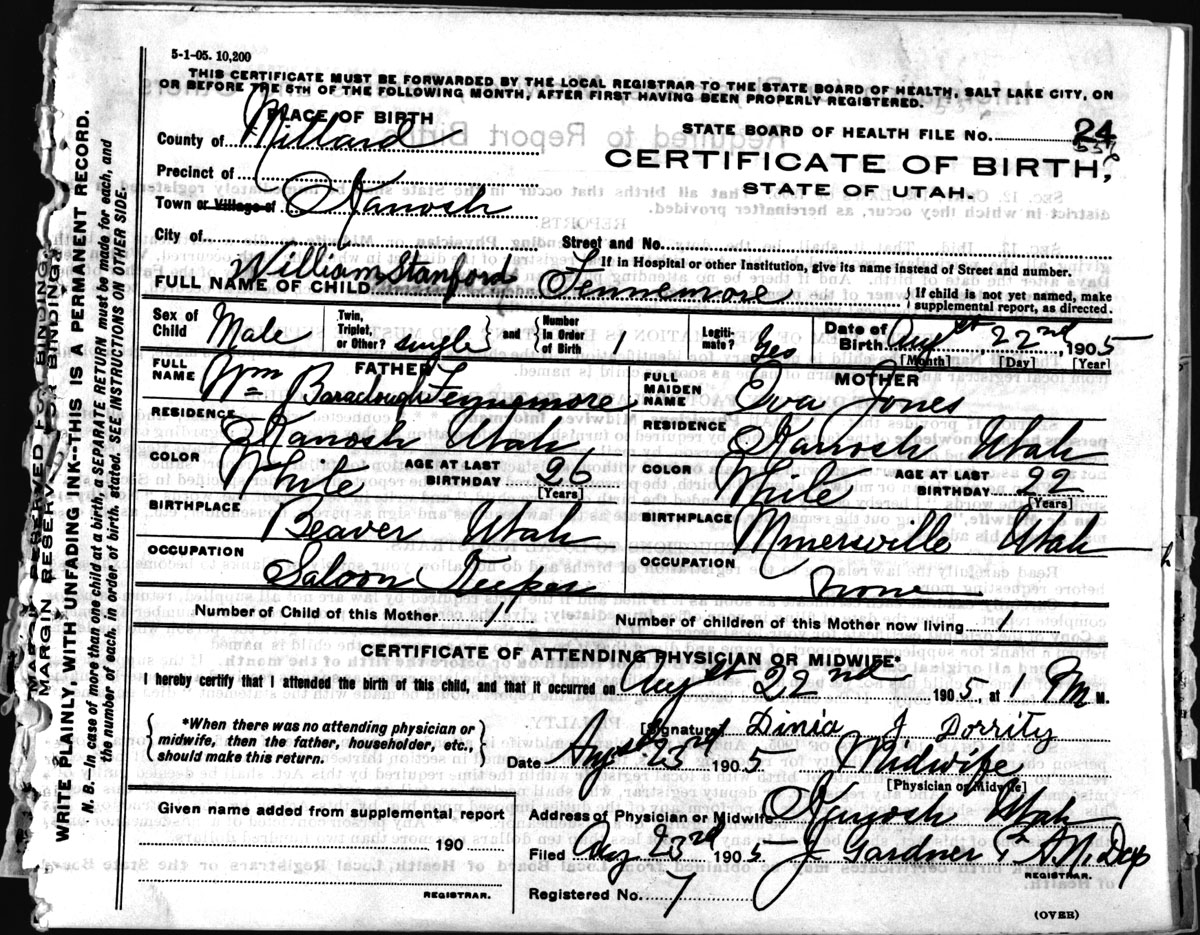 5-1-05. 10,200
THIS CERTIFICATE MUST BE FORWARDED BY THE LOCAL REGISTRAR TO THE STATE BOARD OF HEALTH, SALT LAKE CITY, ON
OR BEFORE THE 5TH OF THE FOLLOWING MONTH, AFTER FIRST HAVING BEEN PROPERLY REGISTERED.
PLACE OF BIRTH
County of Millard
STATE BOARD OF HEALTH FILE No. 24
CERTIFICATE OF BIRTH,
STATE OF UTAH.
Precinct of
Town or Village of Kanosh
City of Street and No.
If in Hospital or other Institution, give its name instead of Street and number.
FULL NAME OF CHILD William Stanford Fennemore
If child is not yet named, make
supplemental report, as directed.
Sex of Child Male Twin, Triplet, or Other? single and Number in Order of Birth 1 Legiti-mate? Yes Date of Birth Augst 22nd, 1905
[Month] [Day] [Year]
FATHER
FULL NAME Wm Baraclough Fennemore
RESIDENCE Kanosh Utah
COLOR White AGE AT LAST BIRTHDAY 26
[Years]
BIRTHPLACE Beaver Utah
OCCUPATION Saloon Keeper
MOTHER
FULL MAIDEN NAME Eva Jones
RESIDENCE Kanosh Utah
COLOR White AGE AT LAST BIRTHDAY 22
[Years]
BIRTHPLACE Minersville Utah
OCCUPATION None
Number of Child of this Mother 1 Number of children of this Mother now living 1
CERTIFICATE OF ATTENDING PHYSICIAN OR MIDWIFE*
I hereby certify that I attended the birth of this child, and that it occurred on Augst 22nd 1905, at 1 M M.
*When there was no attending physician or
midwife, then the father, householder, etc.,
should make this return.
[Signature] Dinia J Dorrity
Date Augst 23rd 1905 Midwife
[Physician or Midwife]
Given name added from supplemental report
190
REGISTRAR.
Address of Physician or Midwife Kanosh Utah
Filed Aug 23rd 1905 J Gardner
REGISTRAR.
Registered No. 7
(OVER)
MARGIN RESERVED FOR BINDING.
WRITE PLAINLY WITH UNFADING INK--THIS IS A PERMANENT RECORD.
N. B.--In case of more than one child at a birth, a SEPARATE RETURN must be made for each, and
the number of each, in order of birth, stated. SEE INSTRUCTIONS ON OTHER SIDE.